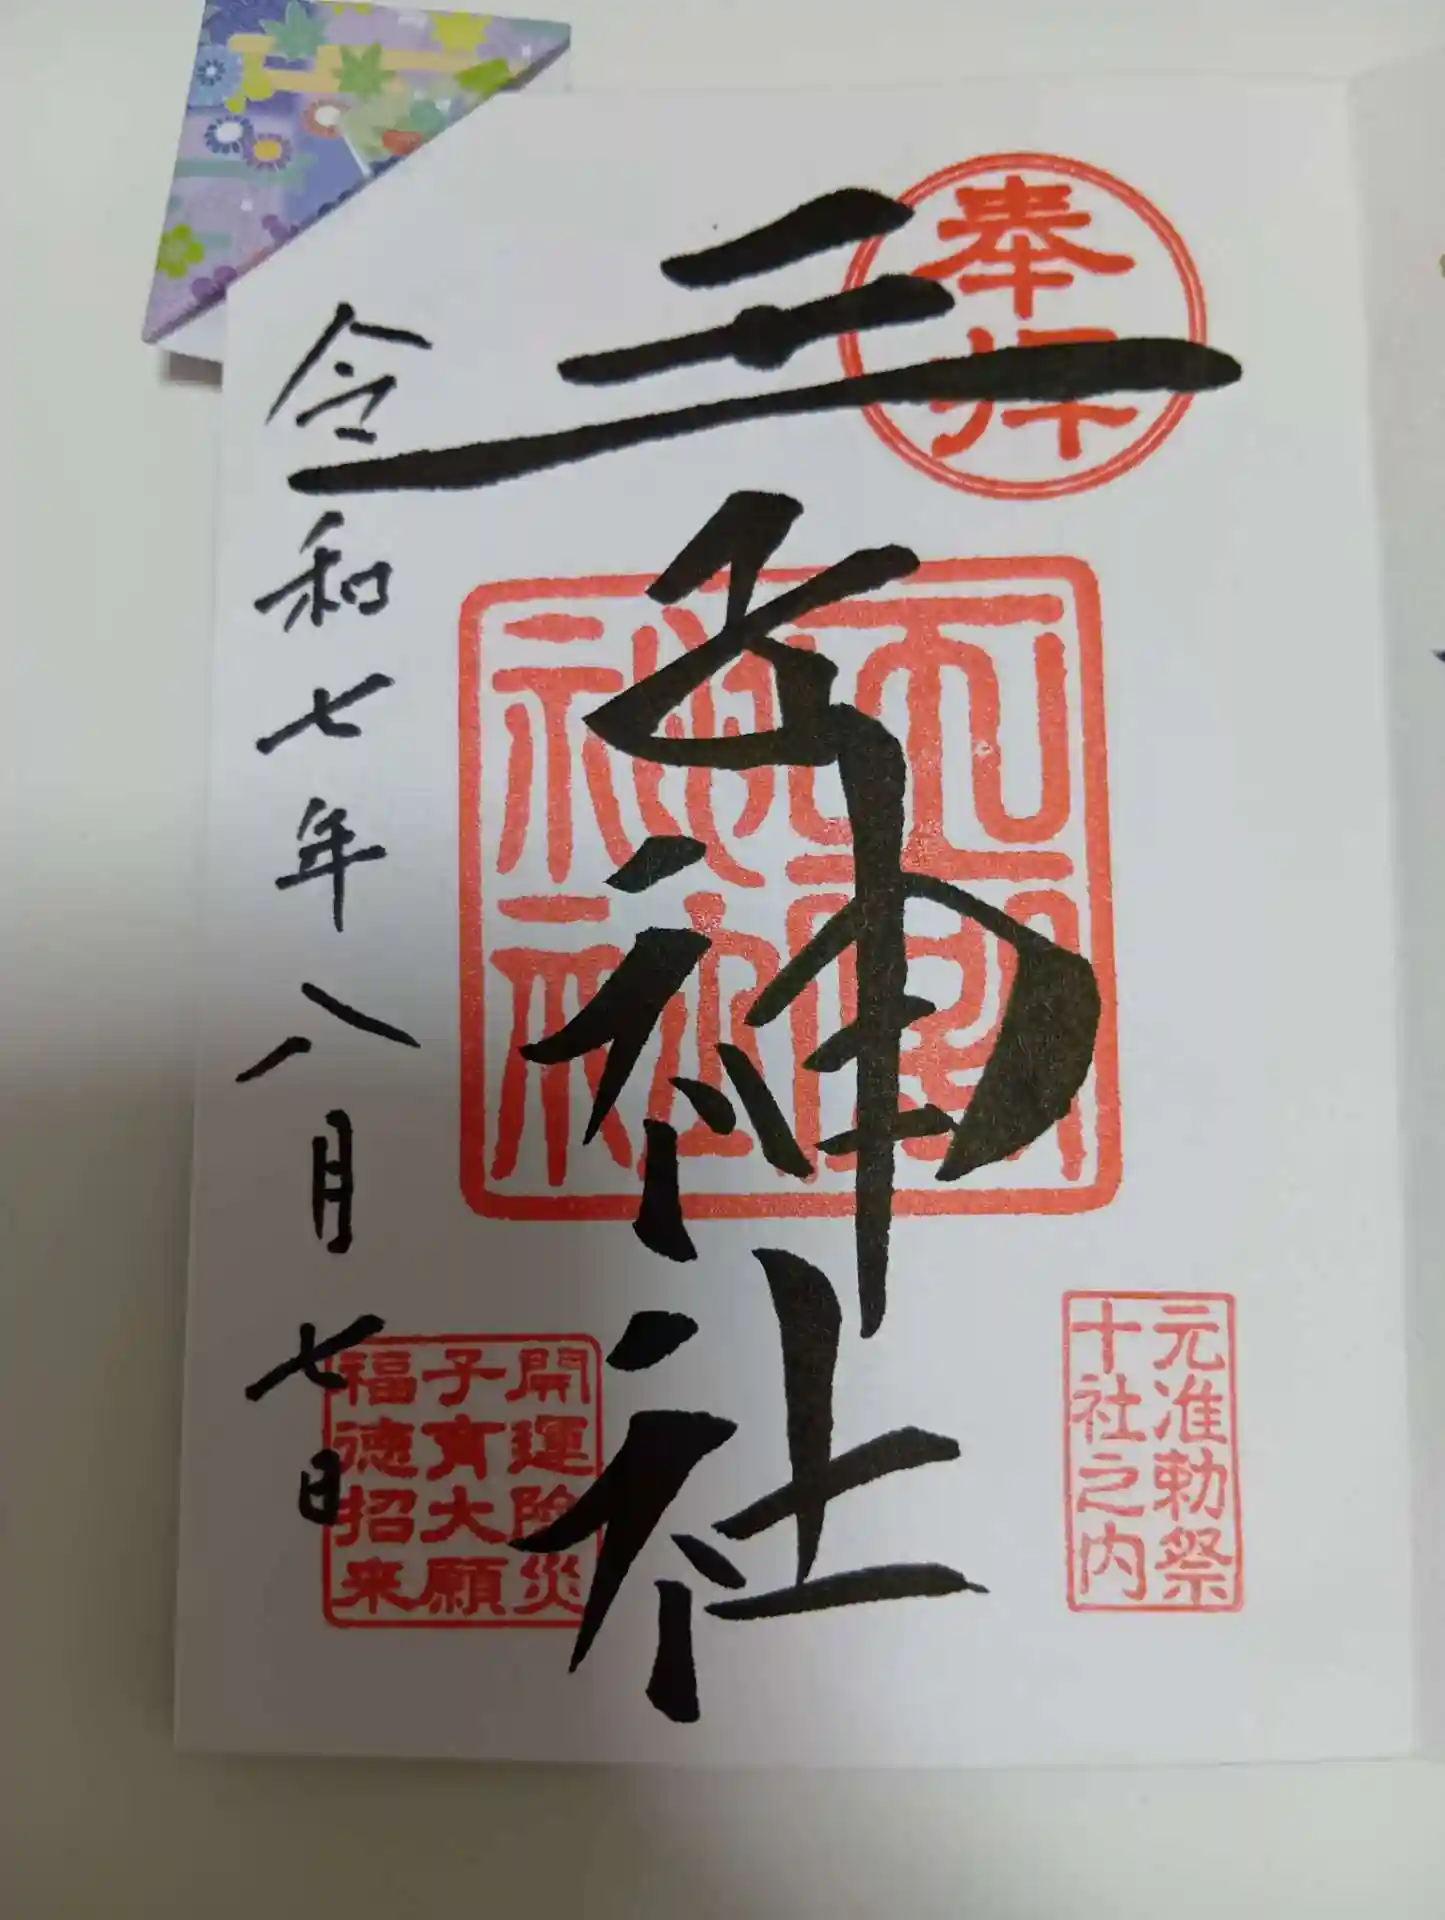 奉拝
王子神社
元准勅祭
十社之内
開運除災
子育大願
福徳招来
令和七年八月七日